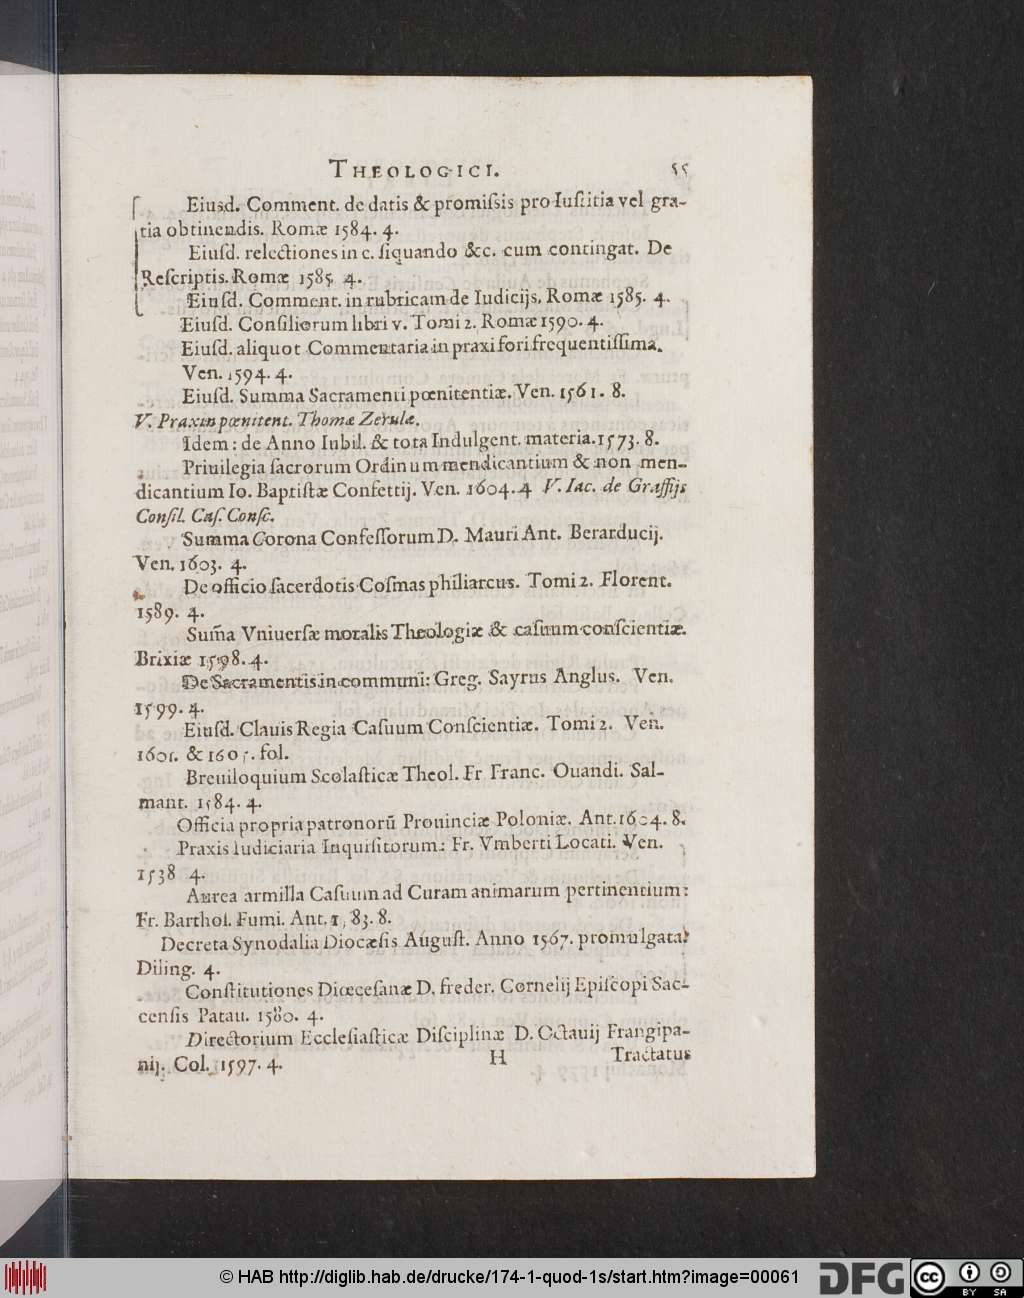 THEOLOGICI. 55
Eiusd. Comment. de datis & promiſsis pro Iuſtitia vel gra-
tia obtinendis. Romæ 1584. 4.
Eiuſd. relectiones in c. ſiquando &c. cum contingat. De
Reſcriptis. Romæ 1585. 4.
Eiuſd. Comment. in rubricam de Iudicijs. Romæ 1585. 4.
Eiuſd. Conſiliorum libri v. Tomi 2. Romæ 1590. 4.
Eiuſd. aliquot Commentaria in praxi fori frequentiſſima.
Ven. 1594. 4.
Eiuſd. Summa Sacramenti pœnitentiæ. Ven. 1561. 8.
V. Praxin pœnitent. Thomæ Zerulæ.
Idem: de Anno Iubil. & tota Indulgent. materia. 1573. 8.
Priuilegia ſacrorum Ordinum mendicantium & non men-
dicantium Io. Baptiſtæ Confettij. Ven. 1604. 4 V. Iac. de Graffijs
Conſil. Caſ. Conſc.
Summa Corona Confeſſorum D. Mauri Ant. Berarducij.
Ven. 1603. 4.
De officio ſacerdotis Coſmas philiarcus. Tomi 2. Florent.
1589. 4.
Sum̃a Vniuerſæ moralis Theologiæ & caſuum conſcientiæ.
Brixiæ 1598. 4.
De Sacramentis in communi: Greg. Sayrus Anglus. Ven.
1599. 4.
Eiuſd. Clauis Regia Caſuum Conſcientiæ. Tomi 2. Ven.
1601. & 1605. fol.
Breuiloquium Scolaſticæ Theol. Fr Franc. Ouandi. Sal-
mant. 1584. 4.
Officia propria patronorũ Prouinciæ Poloniæ. Ant. 1604. 8.
Praxis Iudiciaria Inquiſitorum: Fr. Vmberti Locati. Ven.
1538 4.
Aurea armilla Caſuum ad Curam animarum pertinentium:
Fr. Barthol. Fumi. Ant. 1583. 8.
Decreta Synodalia Diocæſis Auguſt. Anno 1567. promulgata:
Diling. 4.
Conſtitutiones Diœceſanæ D. freder. Cornelij Epiſcopi Sac-
cenſis Patau. 1580. 4.
Directorium Eccleſiaſticæ Diſciplinæ D. Octauij Frangipa-
nij. Col. 1597. 4.
H Tractatus
© HAB http://diglib.hab.de/drucke/174-1-quod-1s/start.htm?image=00061
DFG
cc BY SA